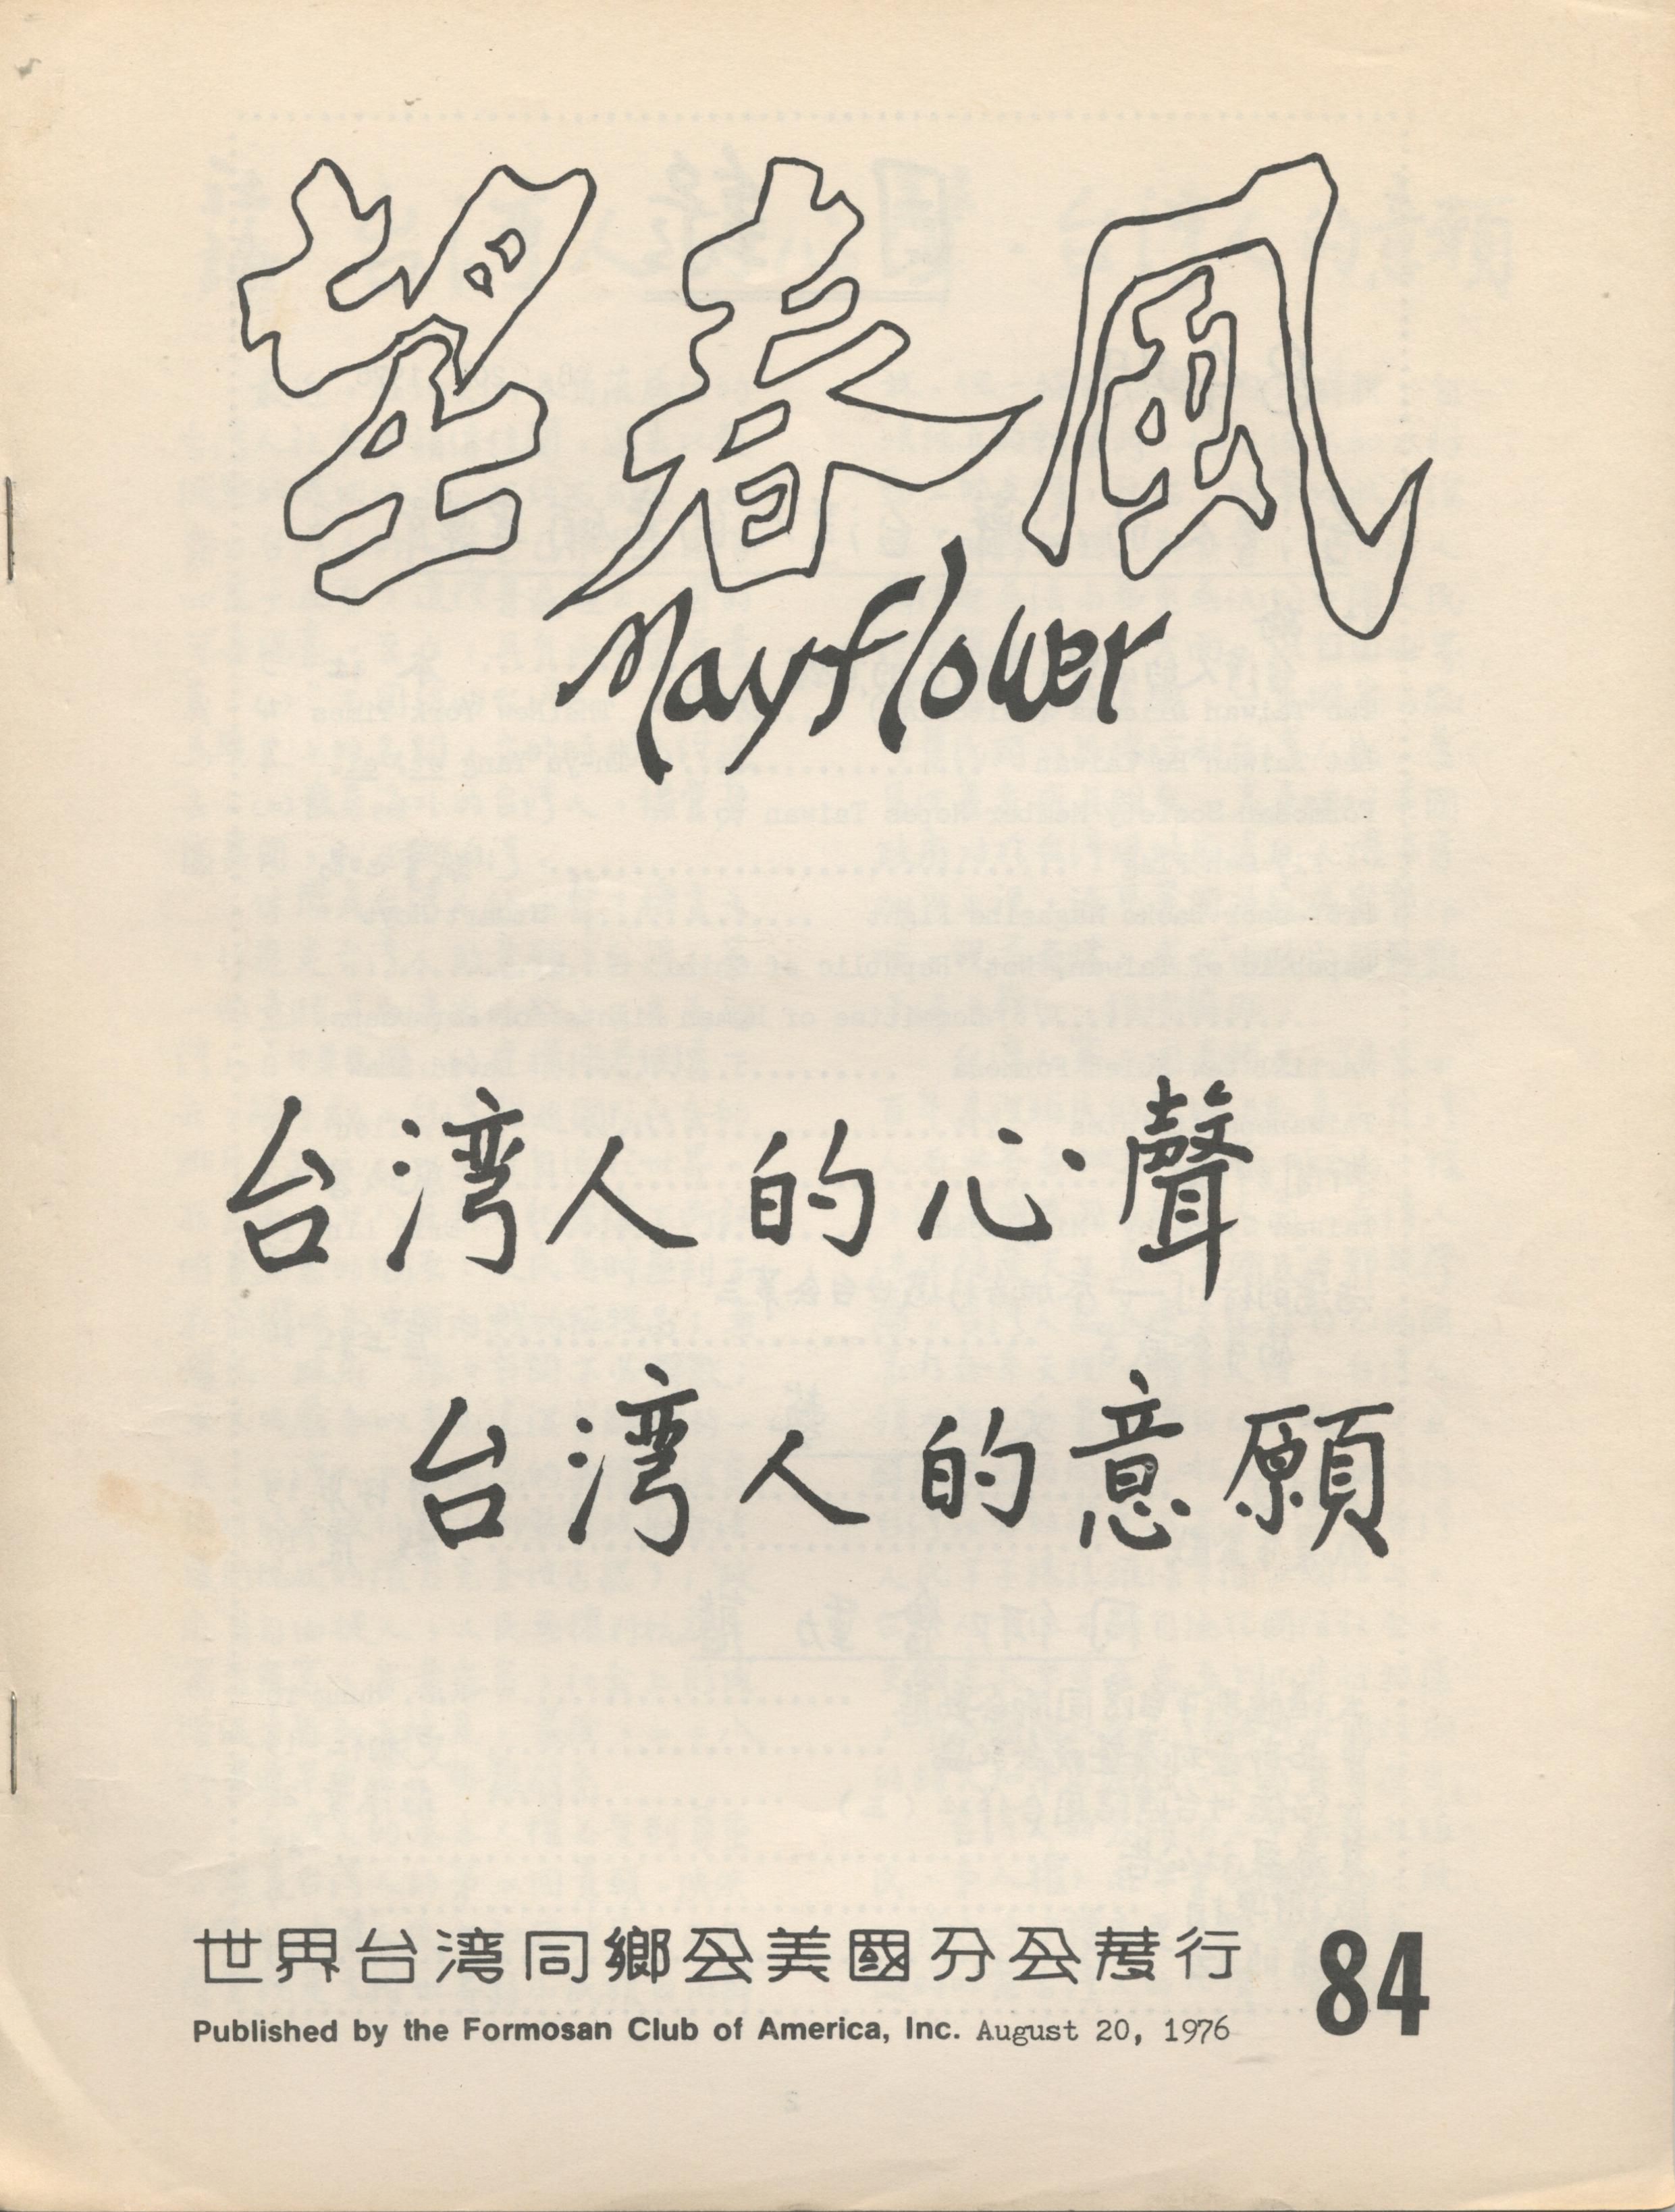 望春風
Mayflower
台湾人的心聲
台湾人的意願
世界台湾同鄉会美國分会發行
84
Published by the Formosan Club of America, Inc. August 20, 1976